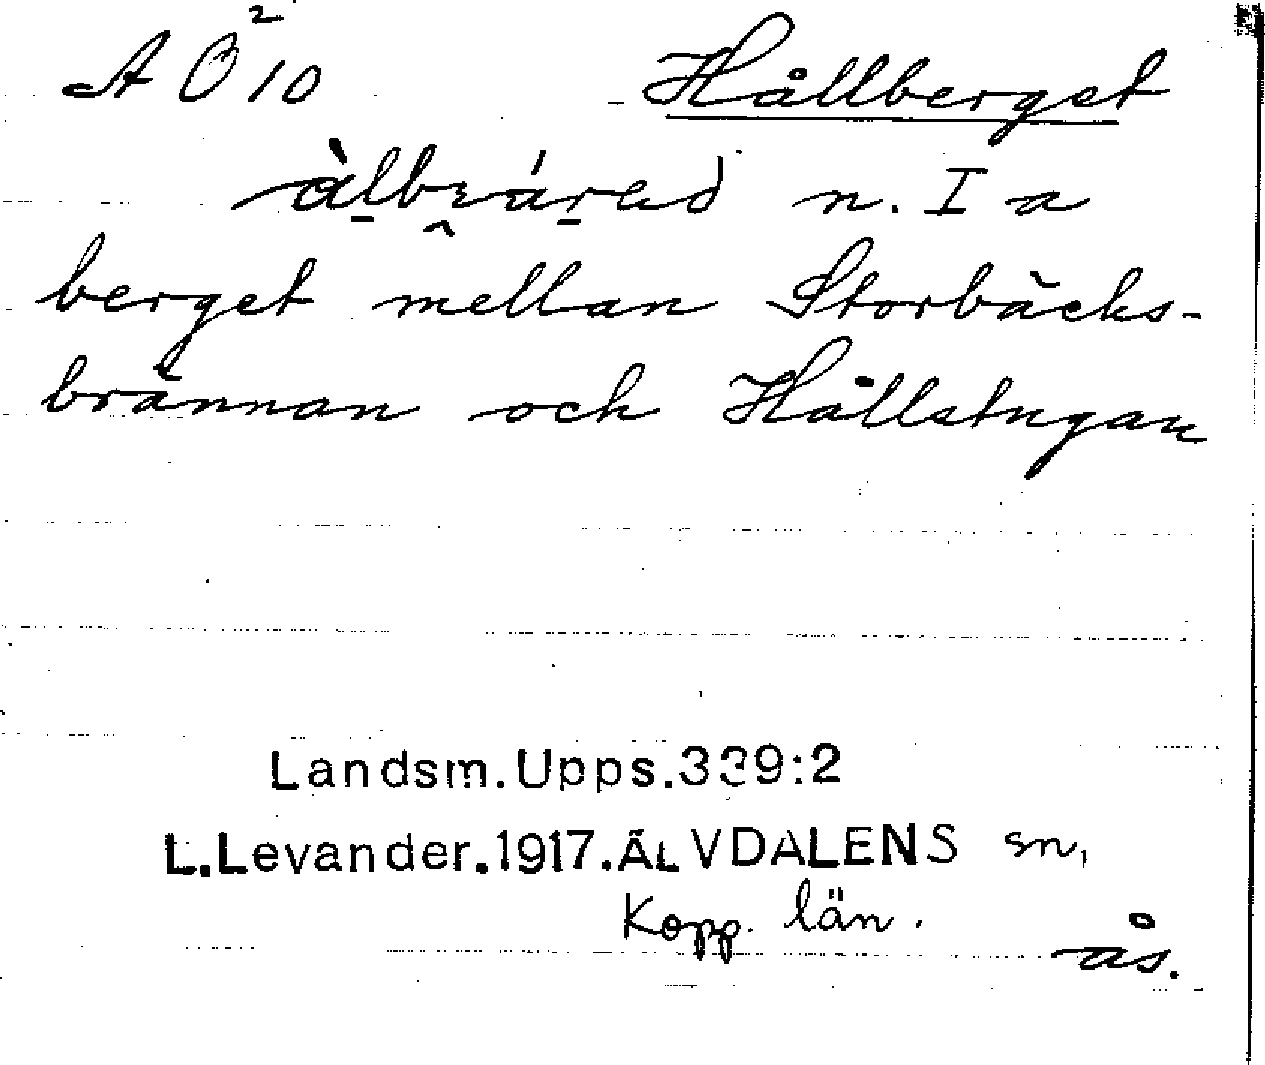 AÖ²10 Hållberget
àlbráred n. I a
berget mellan Storbäcks-
brännan och Hållstugan
Landsm.Upps.339:2
L.Levander.1917.ÄLVDALENS sn,
Kopp. län.
ås.